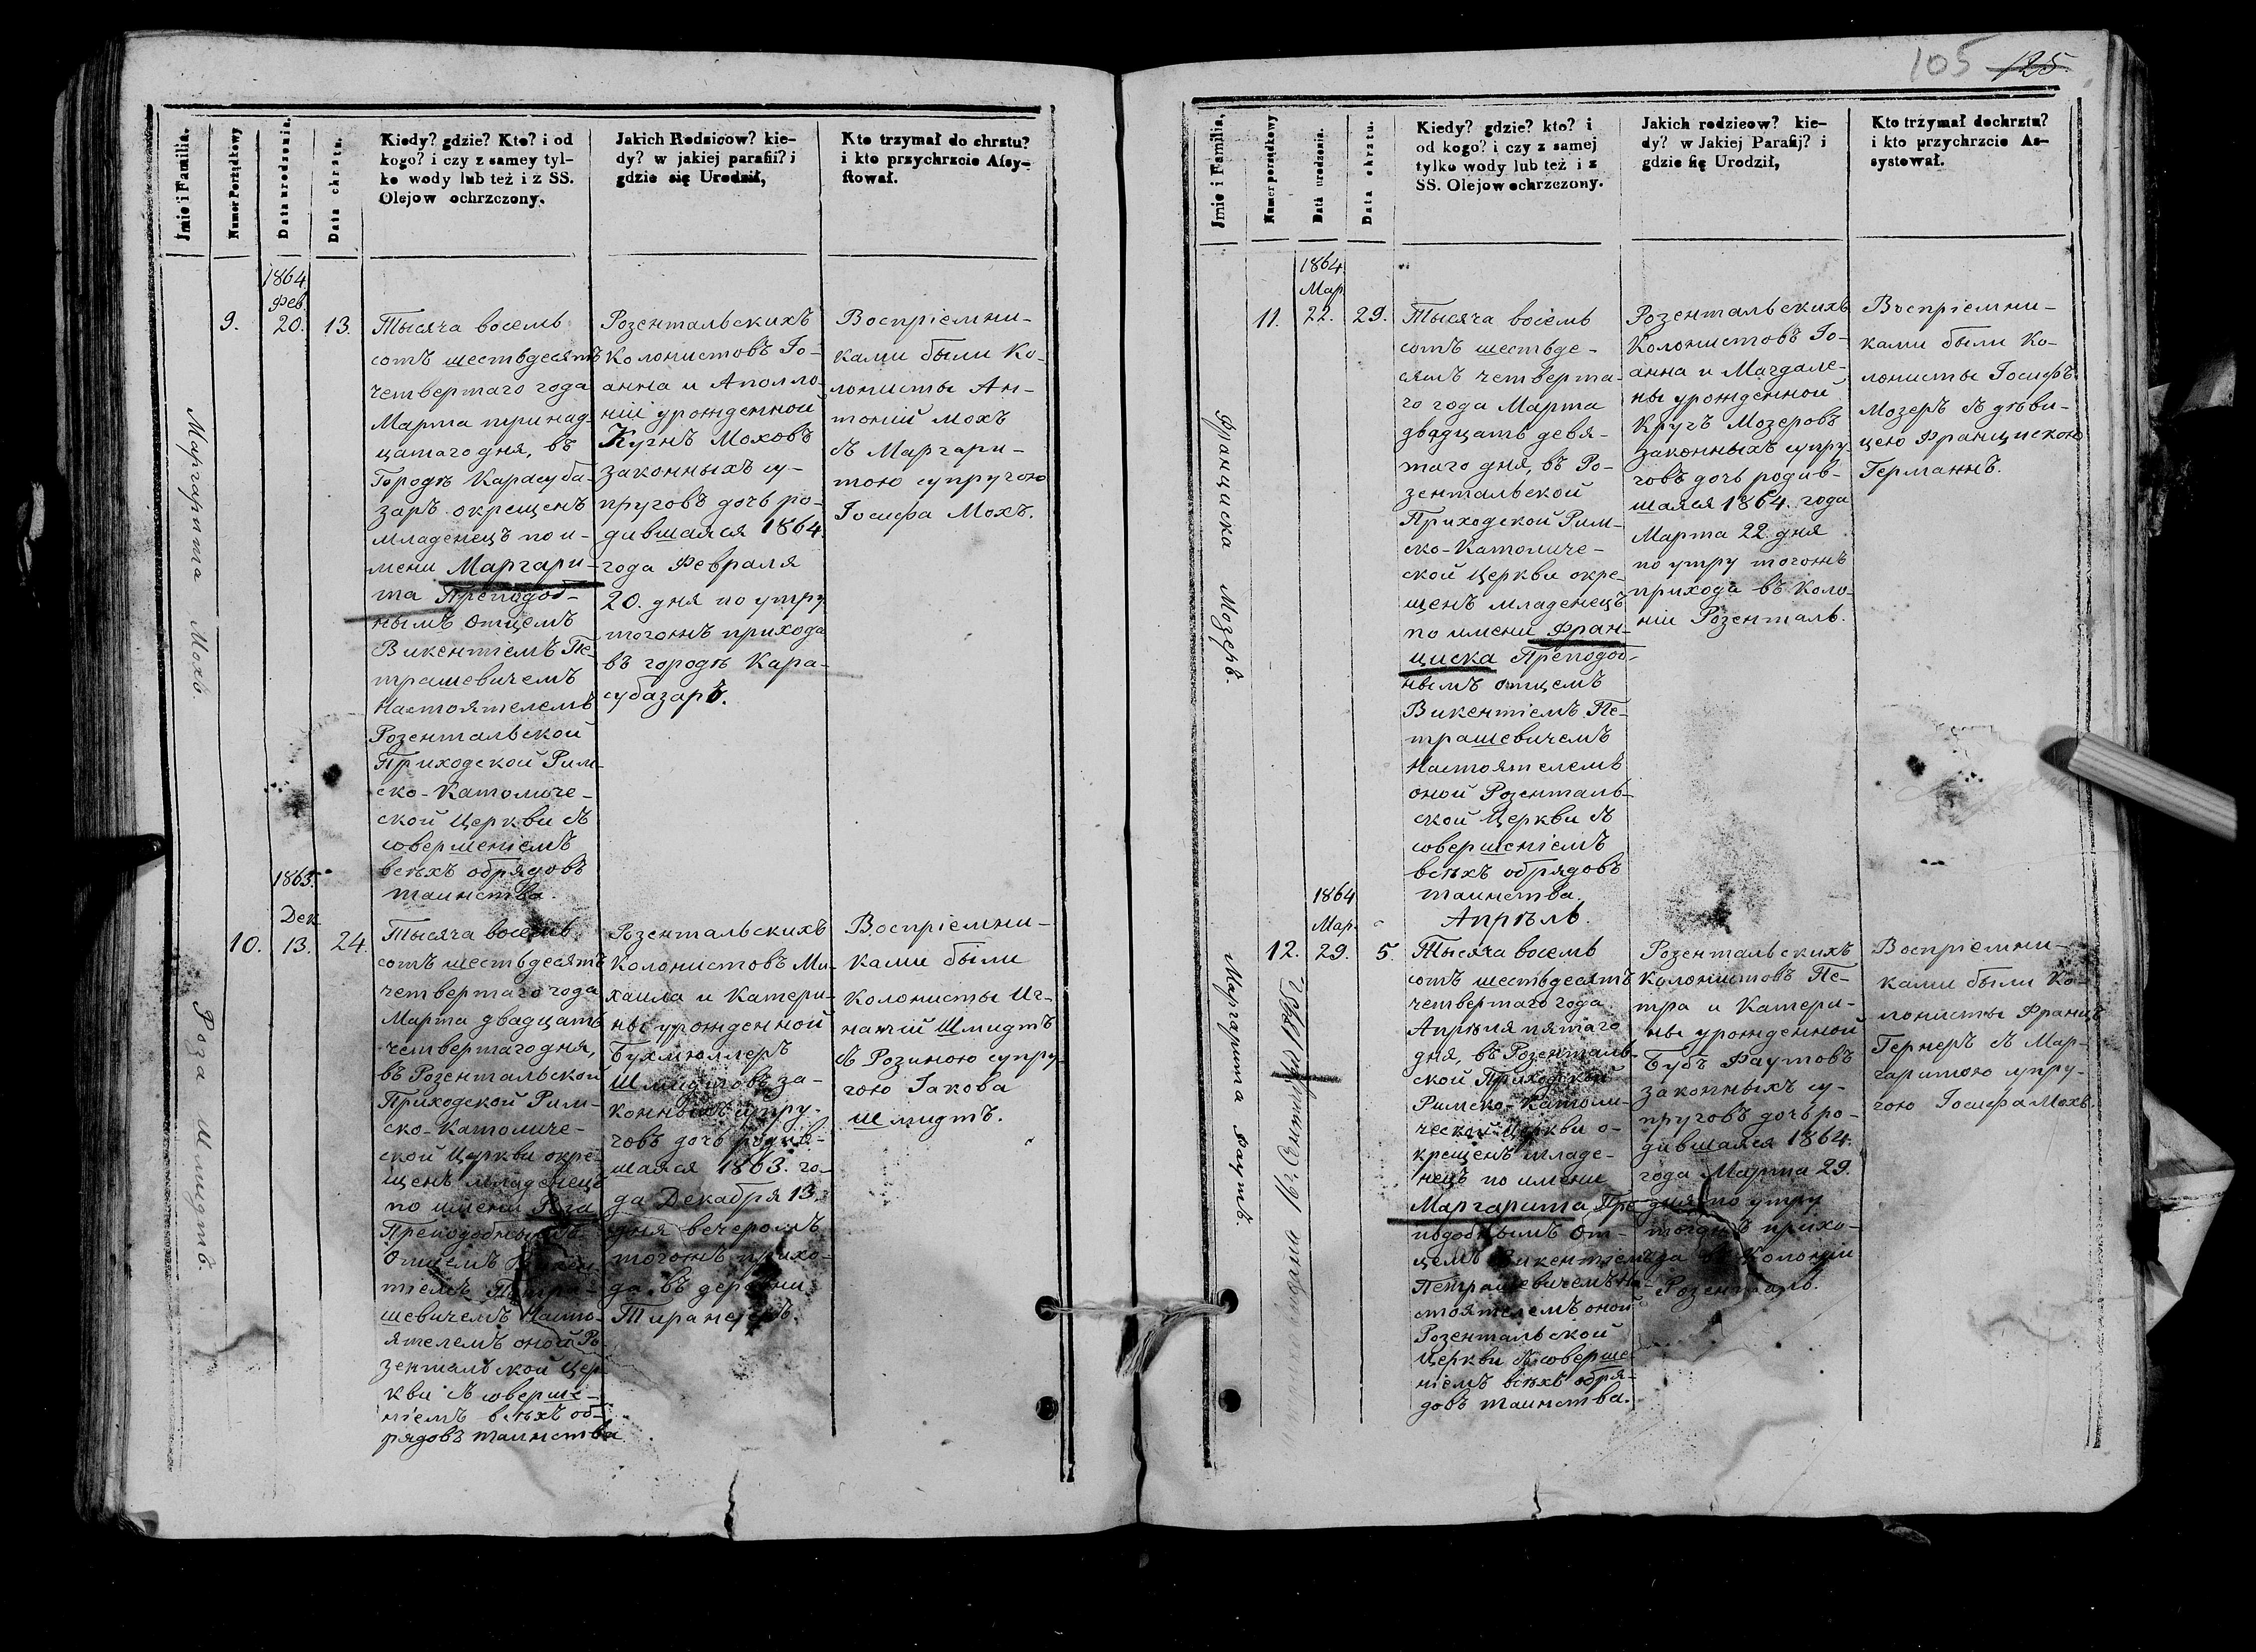 105 125
Jmie i Familia.
Numer Porządkowy
Data urodzenia.
Data chrztu.
Kiedy? gdzie? Kto? i od
kogo? i czy z samey tyl-
ko wody lub też i z SS.
Olejow ochrzczony.
Jakich Rodzicow? kie-
dy? w jakiej parafii? i
gdzie się Urodził,
Kto trzymał do chrztu?
i kto przychrzcie Afsy-
ftował.
Маргарита Мохъ.
9.
1864
Фев.
20.
13.
Тысяча восемь
сотъ шестьдесятъ
четвертаго года
Марта тринад-
цатаго дня, въ
Городѣ Карасуба-
зарѣ окрещенъ
младенецъ по и-
мени Маргари-
та Преподоб-
нымъ Отцемъ
Викентіемъ Пе-
трашевичемъ
Настоятелемъ
Розентальской
Приходской Рим-
ско-Католиче-
ской Церкви съ
совершеніемъ
всѣхъ обрядовъ
таинства.
Розентальскихъ
Колонистовъ Іо-
анна и Аполло-
ніи урожденной
Кунъ Моховъ
законныхъ су-
пруговъ дочь ро-
дившаяся 1864
года Февраля
20. дня по утру
тогожъ прихода
въ городѣ Кара-
субазарѣ.
Воспріемни-
ками были Ко-
лонисты Ан-
тоній Мохъ
съ Маргари-
тою супругою
Іосифа Мохъ.
Роза Шмидтъ.
10.
1863.
Дек.
13.
24.
Тысяча восемь
сотъ шестьдесятъ
четвертаго года
Марта двадцать
четвертаго дня,
въ Розентальской
Приходской Рим-
ско-Католиче-
ской Церкви окре-
щенъ младенецъ
по имени Роза
Преподобнымъ
Отцемъ Викен-
тіемъ Петра-
шевичемъ Насто-
ятелемъ оной Ро-
зентальской Цер-
кви съ соверше-
ніемъ всѣхъ об-
рядовъ таинства.
Розентальскихъ
Колонистовъ Ми-
хаила и Катери-
ны урожденной
Бухмюллеръ
Шмидтовъ за-
конныхъ супру-
говъ дочь родив-
шаяся 1863. го-
да Декабря 13.
дня вечеромъ
тогожъ прихо-
да въ деревни
Воспріемни-
ками были
Колонисты Иг-
натій Шмидтъ
съ Розиною супру-
гою Іакова
Шмидтъ.
Jmie i Familia.
Numer porządkowy
Data urodzenia.
Data chrztu.
Kiedy? gdzie? kto? i
od kogo? i czy z samej
tylko wody lub też i z
SS. Olejow ochrzczony.
Jakich rodzicow? kie-
dy? w Jakiej Parafij? i
gdzie fię Urodził,
Kto trżymał dochrztu?
i kto przychrzcie As-
systował.
Франциска Мозеръ.
11.
1864
Мар.
22.
29.
Тысяча восемь
сотъ шестьде-
сятъ четверта-
го года Марта
двадцать девя-
таго дня, въ Ро-
зентальской
Приходской Рим-
ско-Католиче-
ской Церкви окре-
щенъ младенецъ
по имени Фран-
циска Преподоб-
нымъ отцемъ
Викентіемъ Пе-
трашевичемъ
Настоятелемъ
оной Розенталь-
ской Церкви съ
совершеніемъ
всѣхъ обрядовъ
таинства.
Розентальскихъ
Колонистовъ Іо-
анна и Магдале-
ны урожденной
Кругъ Мозеровъ
законныхъ супру-
говъ дочь родив-
шаяся 1864. года
Марта 22. дня
по утру тогожъ
прихода въ Коло-
ніи Розенталь.
Воспріемни-
ками были Ко-
лонисты Іосифъ
Мозеръ съ дѣви-
цею Францискою
Германнъ.
Апрѣль.
Маргарита Фаутъ.
12.
1864
Мар.
29.
5.
Тысяча восемь
сотъ шестьдесятъ
четвертаго года
Апрѣля пятаго
дня, въ Розенталь-
ской Приходской
Римско-Католи-
ческой Церкви о-
крещенъ младе-
нецъ по имени
Маргарита Пре-
подобнымъ От-
цемъ Викентіемъ
Петрашевичемъ На-
стоятелемъ оной
Розентальской
Церкви съ соверше-
ніемъ всѣхъ обря-
довъ таинства.
Розентальскихъ
Колонистовъ Пе-
тра и Катери-
ны урожденной
Бубъ Фаутовъ
законныхъ су-
пруговъ дочь ро-
дившаяся 1864.
года Марта 29.
дня по утру
тогожъ прихо-
да въ Колоніи
Розенталь.
Воспріемни-
ками были Ко-
лонисты Францъ
Гернеръ съ Мар-
гаритою супру-
гою Іосифа Мохъ.